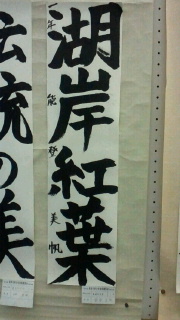 湖岸紅葉
一年 能登美帆
伝統の美